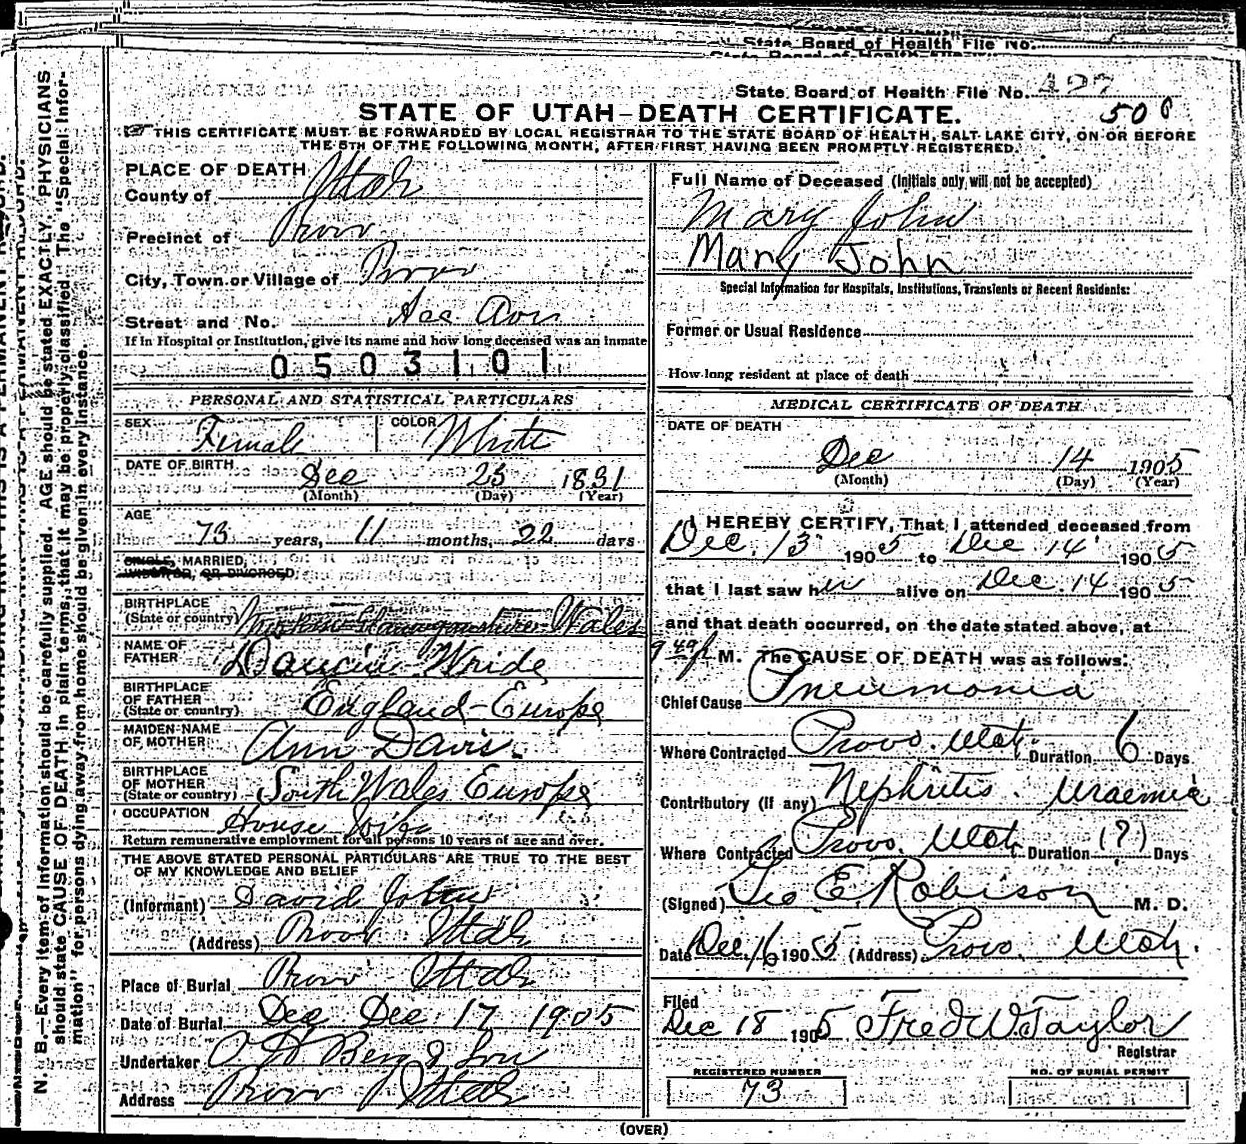 State Board of Health File No.
State Board of Health File No. 497
500
STATE OF UTAH—DEATH CERTIFICATE.
THIS CERTIFICATE MUST BE FORWARDED BY LOCAL REGISTRAR TO THE STATE BOARD OF HEALTH, SALT LAKE CITY, ON OR BEFORE
THE 5TH OF THE FOLLOWING MONTH, AFTER FIRST HAVING BEEN PROMPTLY REGISTERED.
PLACE OF DEATH
County of Utah
Precinct of Provo
City, Town or Village of Provo
Street and No.
If in Hospital or Institution, give its name and how long deceased was an inmate
0503101
PERSONAL AND STATISTICAL PARTICULARS
SEX Female COLOR White
DATE OF BIRTH Dec 23 1831
(Month) (Day) (Year)
AGE
73 years, 11 months, 22 days
SINGLE, MARRIED,
WIDOWED, OR DIVORCED
BIRTHPLACE
(State or country) Wales
NAME OF
FATHER Wride
BIRTHPLACE
OF FATHER
(State or country) England-Europe
MAIDEN NAME
OF MOTHER Ann Davis.
BIRTHPLACE
OF MOTHER
(State or country) South Wales Europe
OCCUPATION House Wife
Return remunerative employment for all persons 10 years of age and over.
THE ABOVE STATED PERSONAL PARTICULARS ARE TRUE TO THE BEST
OF MY KNOWLEDGE AND BELIEF
(Informant) David John
(Address) Provo Utah
Place of Burial Provo Utah
Date of Burial Dec Dec 17 1905
Undertaker O H Berg & Son
Address Provo Utah
Full Name of Deceased (Initials only will not be accepted)
Mary John
Mary John
Special Information for Hospitals, Institutions, Transients or Recent Residents:
Former or Usual Residence
How long resident at place of death
MEDICAL CERTIFICATE OF DEATH
DATE OF DEATH
Dec 14 1905
(Month) (Day) (Year)
I HEREBY CERTIFY, That I attended deceased from
Dec. 13 1905 to Dec. 14 1905
that I last saw her alive on Dec. 14 1905
and that death occurred, on the date stated above, at
M. The CAUSE OF DEATH was as follows:
Chief Cause Pneumonia
Where Contracted Provo. Utah. Duration 6 Days
Contributory (if any) Nephritis. Uraemia
Where Contracted Provo. Utah Duration (?) Days
(Signed) Geo E. Robison M. D.
Date Dec 16 1905 (Address) Provo. Utah.
Filed
Dec 18 1905 Fred W Taylor
Registrar
REGISTERED NUMBER
73
NO. OF BURIAL PERMIT
(OVER)
N. B.—Every item of information should be carefully supplied. AGE should be stated EXACTLY. PHYSICIANS
should state CAUSE OF DEATH in plain terms, that it may be properly classified. The "Special Infor-
mation" for persons dying away from home should be given in every instance.